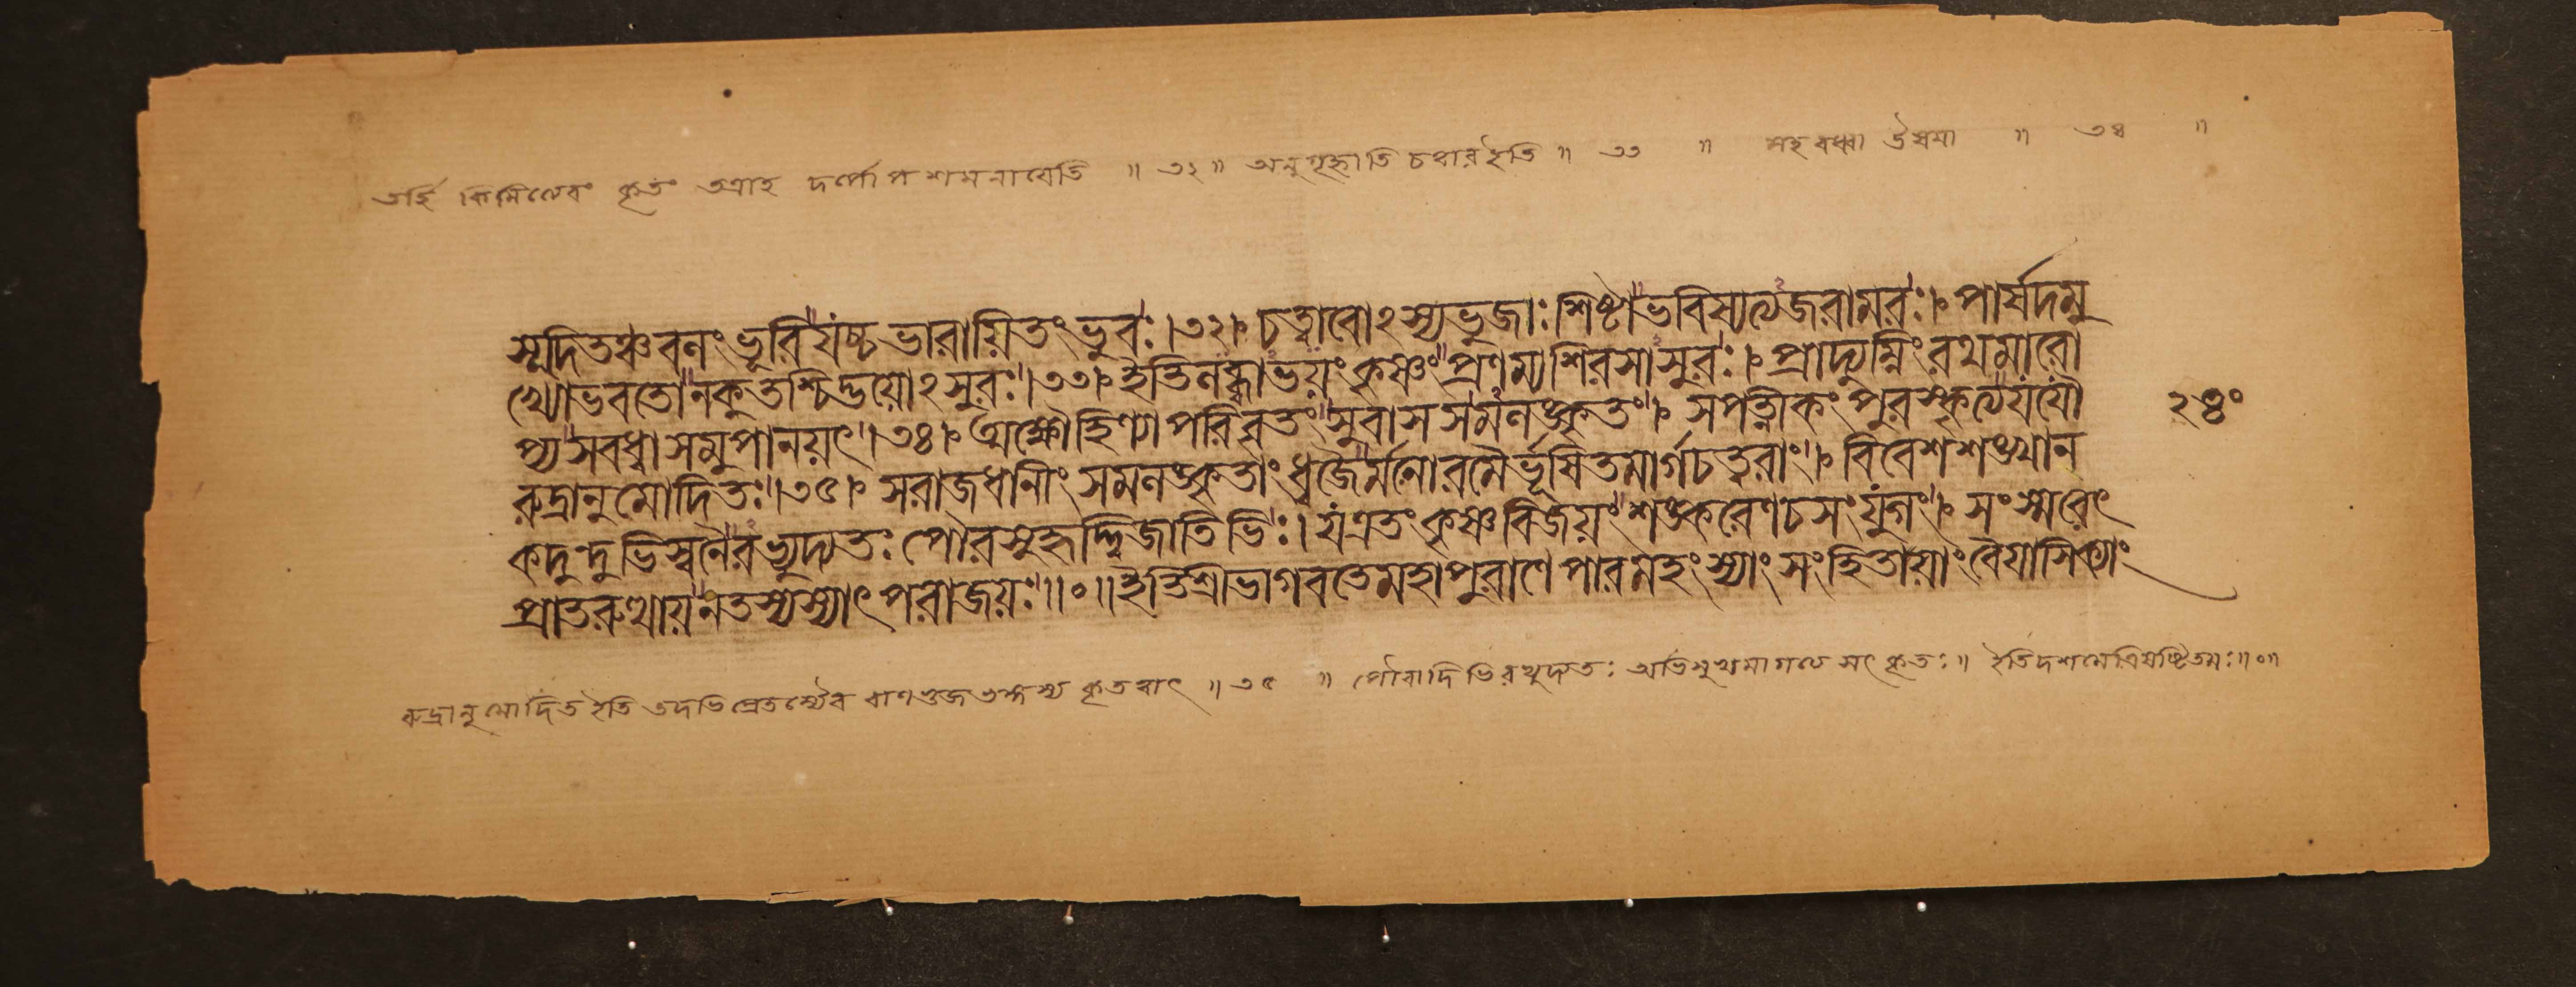 তর্হি কিমিত্যেবং কৃতং তত্রাহ দর্পোপশমনায়েতি ॥ ৩২ ॥ অনুগৃহ্ণাতি চত্বার ইতি ॥ ৩৩ ॥ সহ বধ্বা ঊষয়া ॥ ৩৪ ॥
সূদিতঞ্চবলংভূরিযচ্চভারায়িতংভুবঃ।৩২।চত্বারোঽস্যভুজাঃশিষ্টাভবিষ্যত্যজরামরঃ।পার্ষদমু
খ্যোভবতোনকুতশ্চিদ্ভয়োঽসুরঃ।৩৩।ইতিলব্ধ্বাভয়ংকৃষ্ণংপ্রণম্যশিরসাসুরঃ।প্রাদ্যুম্নিংরথমারো
প্যসবধ্বাসমুপানয়ৎ।৩৪।অক্ষৌহিণ্যাপরিবৃতংসুবাসসমলঙ্কৃতং।সপত্নীকংপুরস্কৃত্যযযৌ
রুদ্রানুমোদিতঃ।৩৫।সরাজধানীংসমলঙ্কৃতাংধ্বজৈর্মনোরমৈর্ভূষিতমার্গচত্বরাং।বিবেশশঙ্খান
কদুন্দুভিস্বনৈরভ্যুদ্যতঃপৌরসুহৃদ্দ্বিজাতিভিঃ।যএতংকৃষ্ণবিজয়ংশঙ্করেণচসংযুগং।সংস্মরেৎ
প্রাতরুত্থায়নতস্যস্যাৎপরাজয়ঃ॥০॥ইতিশ্রীভাগবতেমহাপুরাণেপারমহংস্যাংসংহিতায়াংবৈয়াসিক্যাং
২৪০
রুদ্রানুমোদিত ইতি তদভিপ্রেতস্যৈব বাণভুজভঙ্গস্য কৃতত্বাৎ ॥ ৩৫ ॥ পৌরাদিভিরভ্যুদ্যতঃ অভিমুখমাগত্য সৎকৃতঃ ॥ ইতিদশমেত্রিষষ্টিতমঃ॥০॥